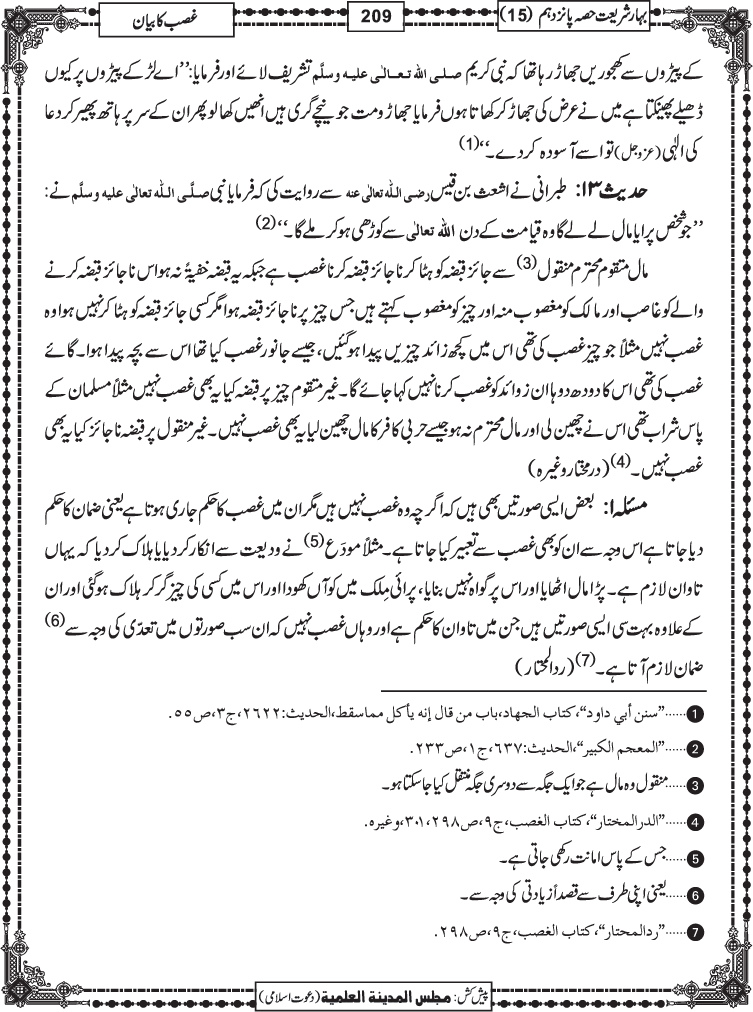 بہار شریعت حصہ پانزدہم (15)
209
غصب کا بیان
کے پیڑوں سے کھجوریں جھاڑ رہا تھا کہ نبی کریم صلی اللہ تعالٰی علیہ وسلَّم تشریف لائے اور فرمایا: ’’اے لڑکے پیڑوں پر کیوں
ڈھیلے پھینکتا ہے میں نے عرض کی جھاڑ کر کھاتا ہوں فرمایا جھاڑو مت جو نیچے گری ہیں انھیں کھا لو پھر ان کے سر پر ہاتھ پھیر کر دعا
کی الٰہی (عزوجل) تو اسے آسودہ کردے۔‘‘(1)
حدیث ۱۳: طبرانی نے اشعث بن قیس رضی اللہ تعالٰی عنہ سے روایت کی کہ فرمایا نبی صلَّی اللہ تعالٰی علیہ وسلَّم نے:
’’جو شخص پرایا مال لے لے گا وہ قیامت کے دن اللہ تعالٰی سے کوڑھی ہو کر ملے گا۔‘‘(2)
مال متقوم محترم منقول(3) سے جائز قبضہ کو ہٹا کر ناجائز قبضہ کرنا غصب ہے جبکہ یہ قبضہ خفیۃً نہ ہو اس ناجائز قبضہ کرنے
والے کو غاصب اور مالک کو مغصوب منہ اور چیز کو مغصوب کہتے ہیں جس چیز پر ناجائز قبضہ ہوا مگر کسی جائز قبضہ کو ہٹا کر نہیں ہوا وہ
غصب نہیں مثلاً جو چیز غصب کی تھی اس میں کچھ زائد چیزیں پیدا ہوگئیں، جیسے جانور غصب کیا تھا اس سے بچہ پیدا ہوا۔ گائے
غصب کی تھی اس کا دودھ دوہا ان زوائد کو غصب کرنا نہیں کہا جائے گا۔ غیر متقوم چیز پر قبضہ کیا یہ بھی غصب نہیں مثلاً مسلمان کے
پاس شراب تھی اس نے چھین لی اور مال محترم نہ ہو جیسے حربی کافر کا مال چھین لیا یہ بھی غصب نہیں۔ غیر منقول پر قبضہ ناجائز کیا یہ بھی
غصب نہیں۔(4) (درمختار وغیرہ)
مسئلہ ۱: بعض ایسی صورتیں بھی ہیں کہ اگرچہ وہ غصب نہیں ہیں مگر ان میں غصب کا حکم جاری ہوتا ہے یعنی ضمان کا حکم
دیا جاتا ہے اس وجہ سے ان کو بھی غصب سے تعبیر کیا جاتا ہے۔ مثلاً مودَع(5) نے ودیعت سے انکار کردیا یا ہلاک کردیا کہ یہاں
تاوان لازم ہے۔ پڑا مال اٹھایا اور اس پر گواہ نہیں بنایا، پرائی مِلک میں کوآں کھودا اور اس میں کسی کی چیز گر کر ہلاک ہوگئی اور ان
کے علاوہ بہت سی ایسی صورتیں ہیں جن میں تاوان کا حکم ہے اور وہاں غصب نہیں کہ ان سب صورتوں میں تعدّی کی وجہ سے(6)
ضمان لازم آتا ہے۔(7) (ردالمحتار)
1 ......’’سنن أبي داود‘‘، كتاب الجهاد، باب من قال إنه يأكل مماسقط، الحديث: ٢٦٢٢، ج٣، ص٥٥.
2 ......’’المعجم الكبير‘‘، الحديث: ٦٣٧، ج١، ص٢٣٣.
3 ......منقول وہ مال ہے جو ایک جگہ سے دوسری جگہ منتقل کیا جاسکتا ہو۔
4 ......’’الدرالمختار‘‘، كتاب الغصب، ج٩، ص٢٩٨، ٣٠١، وغيره.
5 ......جس کے پاس امانت رکھی جاتی ہے۔
6 ......یعنی اپنی طرف سے قصداً زیادتی کی وجہ سے۔
7 ......’’ردالمحتار‘‘، كتاب الغصب، ج٩، ص٢٩٨.
پیش کش: مجلس المدینۃ العلمیۃ (دعوت اسلامی)